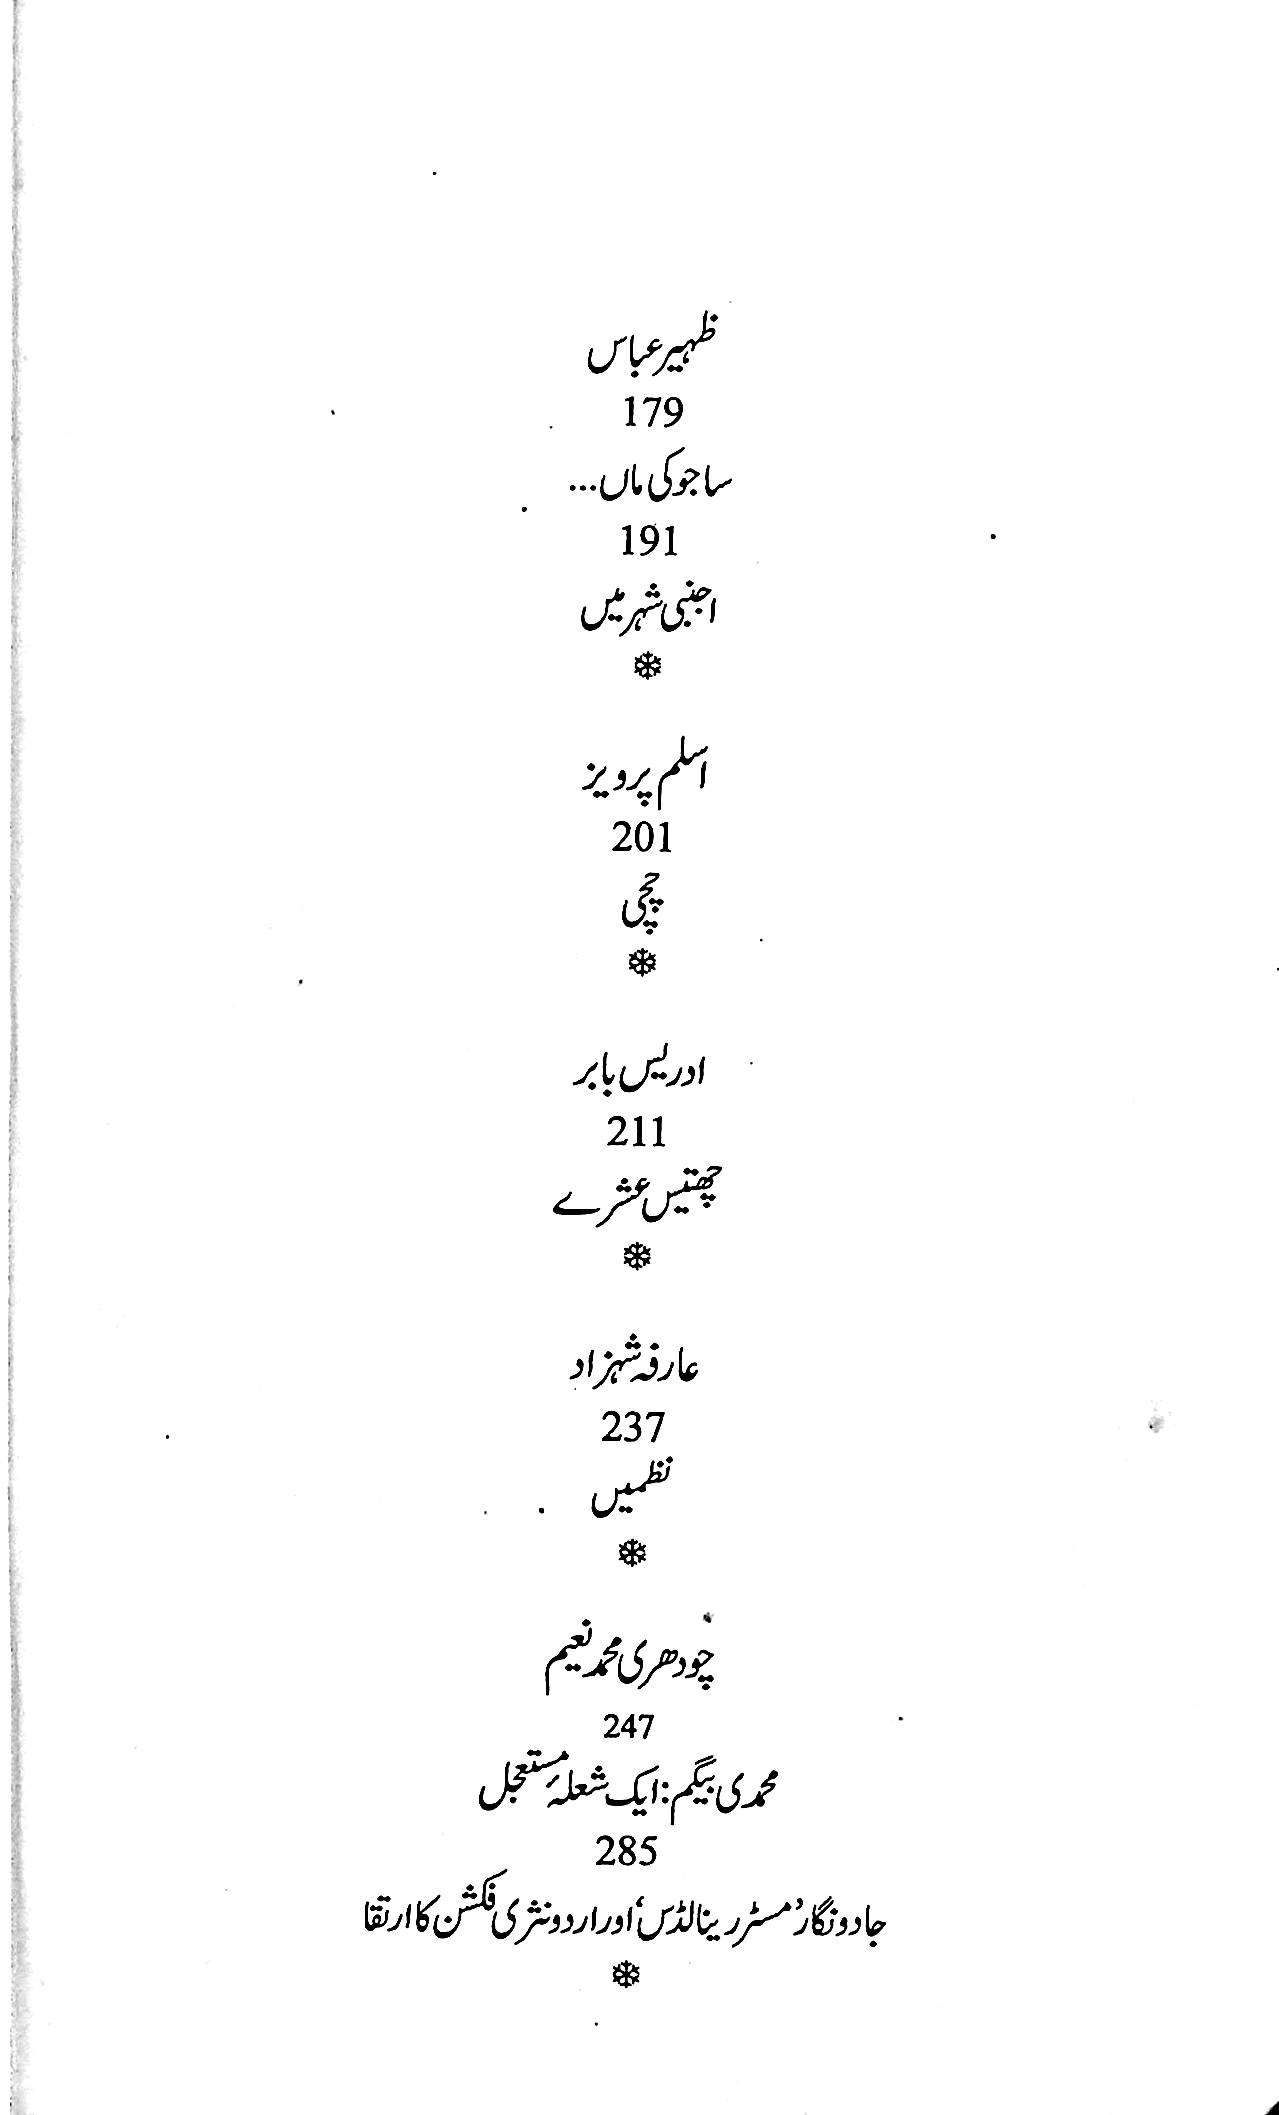 ظہیر عباس
179
ساجو کی ماں...
191
اجنبی شہر میں
❄
اسلم پرویز
201
چچی
❄
ادریس بابر
211
چھتیس عشرے
❄
عارفہ شہزاد
237
نظمیں
❄
چودھری محمد نعیم
247
محمدی بیگم: ایک شعلۂ مستعجل
285
جادو نگار ’مسٹر رینالڈس‘ اور اردو نثری فکشن کا ارتقا
❄